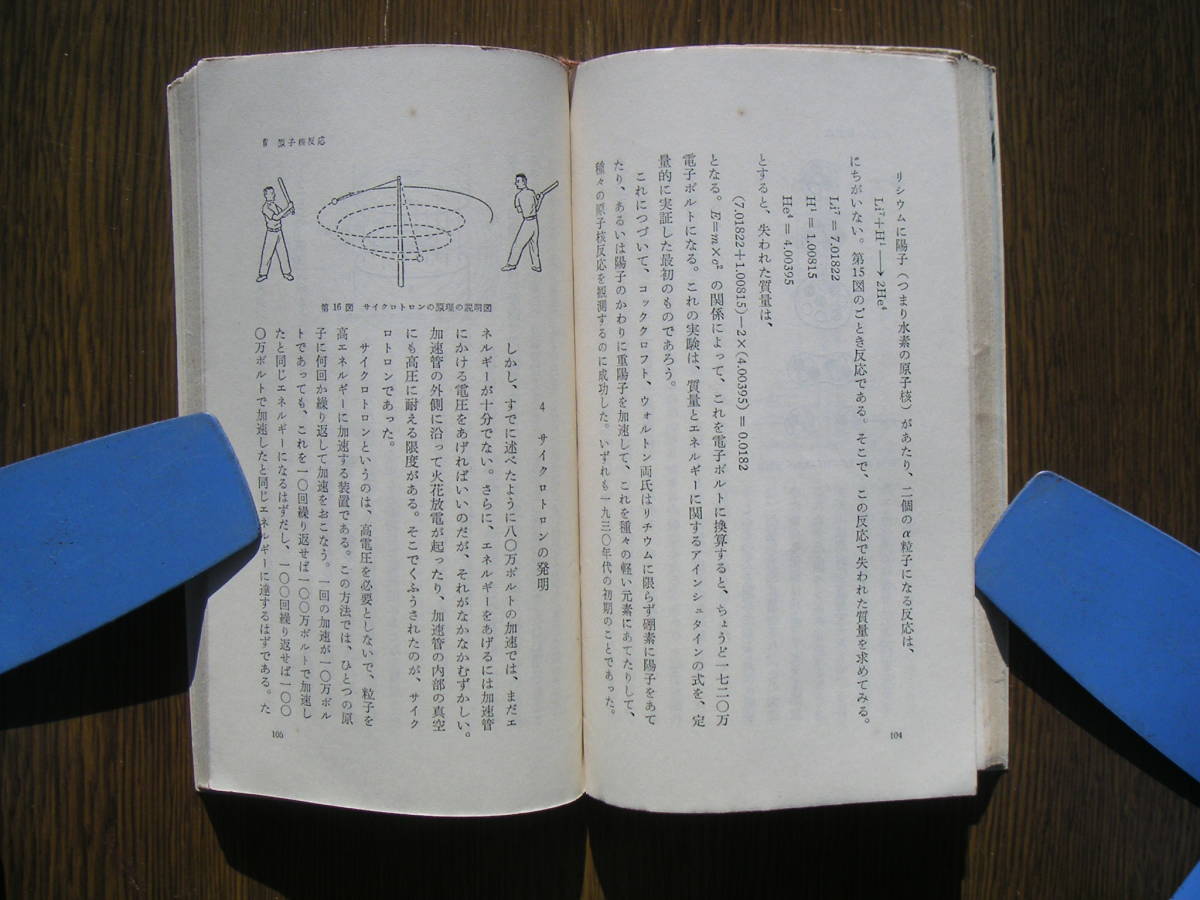 リシウムに陽子（つまり水素の原子核）があたり、二個のα粒子になる反応は、
Li⁷+H¹⟶2He⁴
にちがいない。第15図のごとき反応である。そこで、この反応で失われた質量を求めてみる。
Li⁷＝7.01822
H¹＝1.00815
He⁴＝4.00395
とすると、失われた質量は、
(7.01822+1.00815)—2×(4.00395)＝0.0182
となる。E＝m×c² の関係によって、これを電子ボルトに換算すると、ちょうど一七二〇万
電子ボルトになる。これの実験は、質量とエネルギーに関するアインシュタインの式を、定
量的に実証した最初のものであろう。
これにつづいて、コッククロフト、ウォルトン両氏はリチウムに限らず硼素に陽子をあて
たり、あるいは陽子のかわりに重陽子を加速して、これを種々の軽い元素にあてたりして、
種々の原子核反応を観測するのに成功した。いずれも一九三〇年代の初期のことであった。
104
原子核反応
第16図 サイクロトロンの原理の説明図
4 サイクロトロンの発明
しかし、すでに述べたように八〇万ボルトの加速では、まだエ
ネルギーが十分でない。さらに、エネルギーをあげるには加速管
にかける電圧をあげればいいのだが、それがなかなかむずかしい。
加速管の外側に沿って火花放電が起ったり、加速管の内部の真空
にも高圧に耐える限度がある。そこでくふうされたのが、サイク
ロトロンであった。
サイクロトロンというのは、高電圧を必要としないで、粒子を
高エネルギーに加速する装置である。この方法では、ひとつの原
子に何回か繰り返して加速をおこなう。一回の加速が一〇万ボル
トであっても、これを一〇回繰り返せば一〇〇万ボルトで加速し
たと同じエネルギーになるはずだし、一〇〇回繰り返せば一〇〇
〇万ボルトで加速したと同じエネルギーに達するはずである。た
105